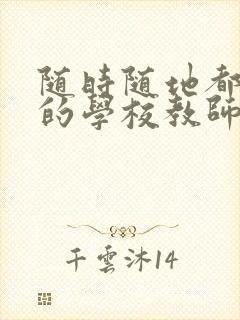 随時随地都
的學校教師
千雲沐14